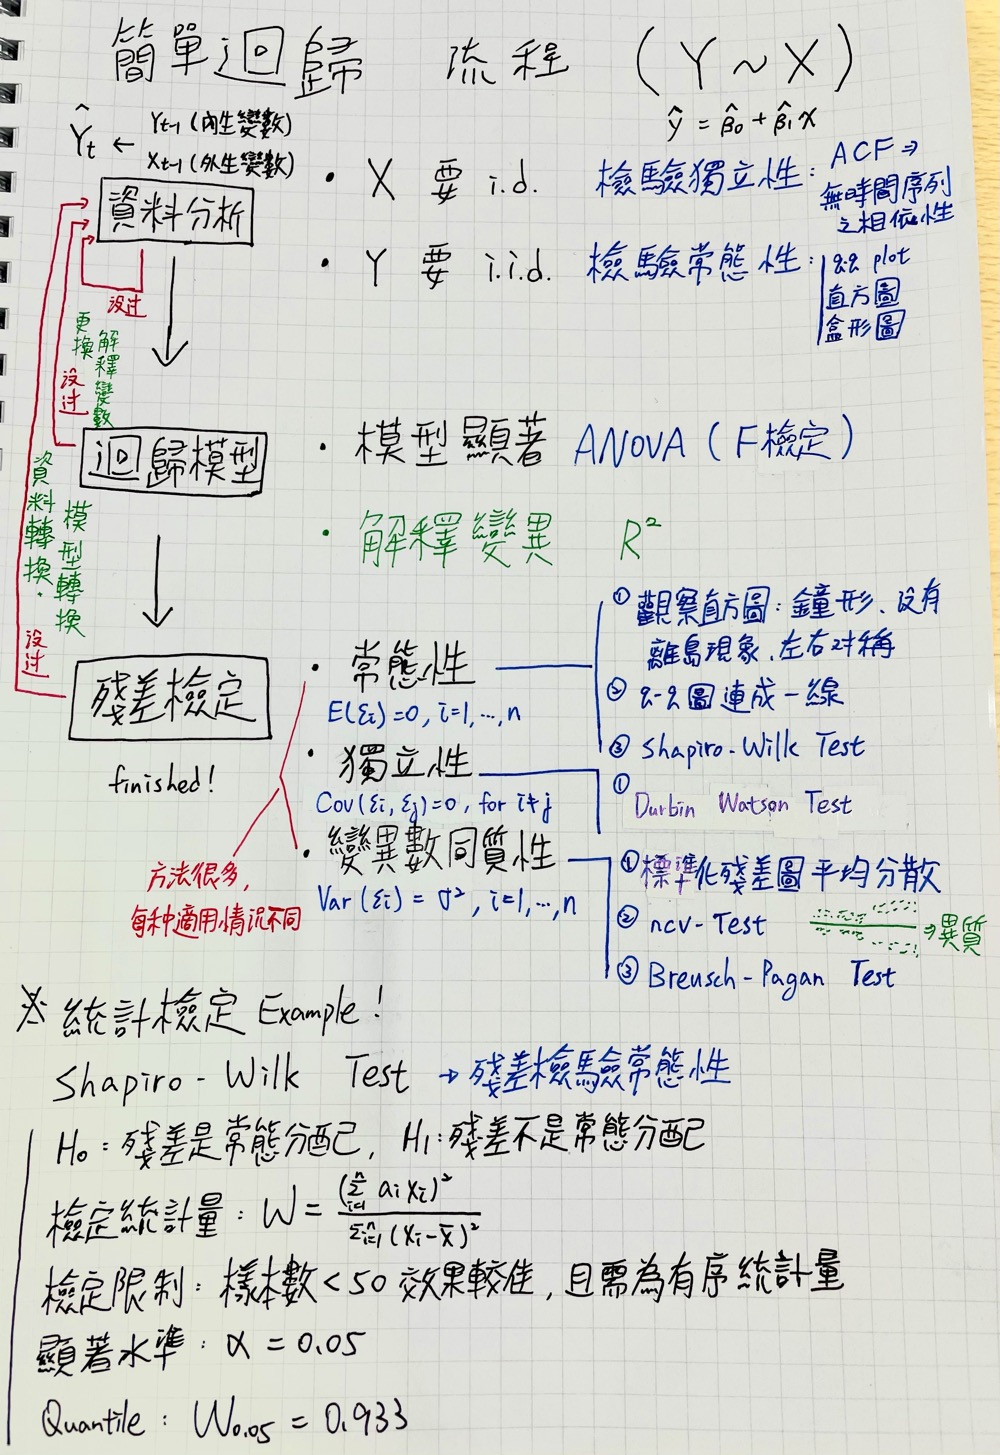 簡單迴歸 流程 (Y~X)
Ŷt ← Yt-1 (內生變數)
Xt-1 (外生變數)
ŷ = β̂0 + β̂1x
資料分析
• X 要 i.d. 檢驗獨立性: ACF ⇒
無時間序列
之相依性
• Y 要 i.i.d. 檢驗常態性: q-q plot
直方圖
盒形圖
沒过
更換
解釋變數
沒过
迴歸模型
• 模型顯著 ANOVA (F檢定)
• 解釋變異 R²
資料轉換.
模型轉換
沒过
殘差檢定
finished!
• 常態性
E(εi)=0, i=1,…,n
① 觀察直方圖: 鐘形、沒有
離島現象、左右対稱
② q-q圖連成一線
③ Shapiro-Wilk Test
• 獨立性
Cov(εi, εj)=0, for i≠j
① Durbin Watson Test
• 變異數同質性
Var(εi) = σ², i=1,…,n
① 標準化殘差圖平均分散
② ncv-Test
→異質
③ Breusch-Pagan Test
方法很多,
每种適用情況不同
※ 統計檢定 Example!
Shapiro-Wilk Test → 殘差檢驗常態性
H0: 殘差是常態分配, H1: 殘差不是常態分配
檢定統計量: W = (Σⁿi=1 ai xi)² / Σⁿi=1 (xi-x̄)²
檢定限制: 樣本數<50效果較佳, 且需為有序統計量
顯著水準: α = 0.05
Quantile: W0.05 = 0.933